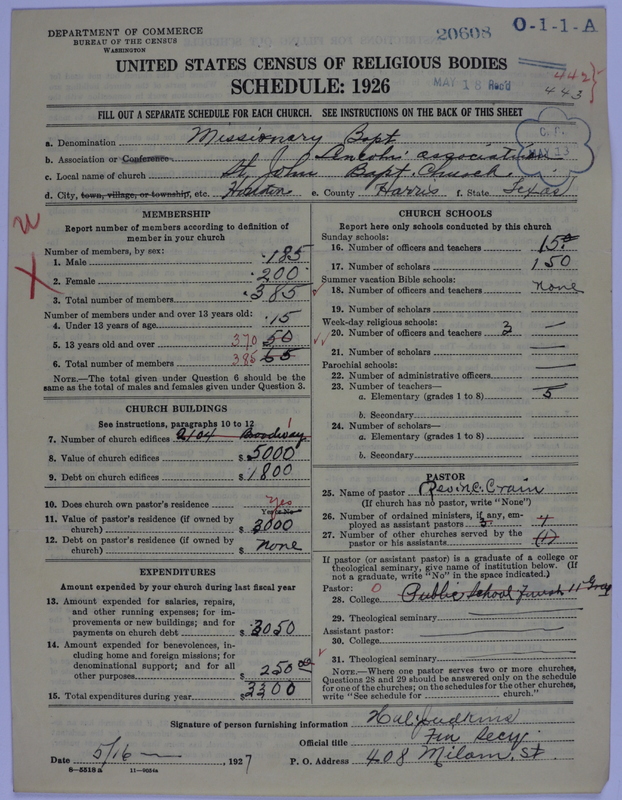 DEPARTMENT OF COMMERCE
BUREAU OF THE CENSUS
WASHINGTON
20608
O-1-1-A
UNITED STATES CENSUS OF RELIGIOUS BODIES
SCHEDULE: 1926
MAY 18 Rec'd
442
443
FILL OUT A SEPARATE SCHEDULE FOR EACH CHURCH. SEE INSTRUCTIONS ON THE BACK OF THIS SHEET
a. Denomination Missionary Bapt
b. Association or Conference Lincoln association
c. Local name of church St, John Bapt. Church.
MAY 13
d. City, town, village, or township, etc. Houston e. County Harris f. State Texas
MEMBERSHIP
Report number of members according to definition of
member in your church
Number of members, by sex:
1. Male 185
2. Female 200
3. Total number of members 385
Number of members under and over 13 years old:
4. Under 13 years of age 15
5. 13 years old and over 370 50
6. Total number of members 385 65
NOTE.—The total given under Question 6 should be the
same as the total of males and females given under Question 3.
CHURCH BUILDINGS
See instructions, paragraphs 10 to 12
7. Number of church edifices 2104 Broodway 1
8. Value of church edifices $ 5000
9. Debt on church edifices $ 1800
10. Does church own pastor's residence Yes
Yes or No
11. Value of pastor's residence (if owned by
church) $ 2000
12. Debt on pastor's residence (if owned by
church) $ None
EXPENDITURES
Amount expended by your church during last fiscal year
13. Amount expended for salaries, repairs,
and other running expenses; for im-
provements or new buildings; and for
payments on church debt $ 3050
14. Amount expended for benevolences, in-
cluding home and foreign missions; for
denominational support; and for all
other purposes $ 250 00
15. Total expenditures during year $ 3300
CHURCH SCHOOLS
Report here only schools conducted by this church
Sunday schools:
16. Number of officers and teachers 15
17. Number of scholars 150
Summer vacation Bible schools:
18. Number of officers and teachers None
19. Number of scholars
Week-day religious schools:
20. Number of officers and teachers 3 —
21. Number of scholars —
Parochial schools:
22. Number of administrative officers —
23. Number of teachers—
a. Elementary (grades 1 to 8) 5
b. Secondary
24. Number of scholars—
a. Elementary (grades 1 to 8) —
b. Secondary
PASTOR
25. Name of pastor Crain
(If church has no pastor, write "None")
26. Number of ordained ministers, if any, em-
ployed as assistant pastors 3. 4
27. Number of other churches served by the
pastor or his assistants (1)
If pastor (or assistant pastor) is a graduate of a college or
theological seminary, give name of institution below. (If
not a graduate, write "No" in the space indicated.)
Pastor: 0
28. College Public School 11 Grap
29. Theological seminary
Assistant pastor:
30. College
31. Theological seminary
NOTE.—Where one pastor serves two or more churches,
Questions 28 and 29 should be answered only on the schedule
for one of the churches; on the schedules for the other churches,
write "See schedule for church."
Signature of person furnishing information
Official title Fin Secy.
Date 5/16 — , 1927 P. O. Address 408 Milam, St.
8—5518 a 11—9054a